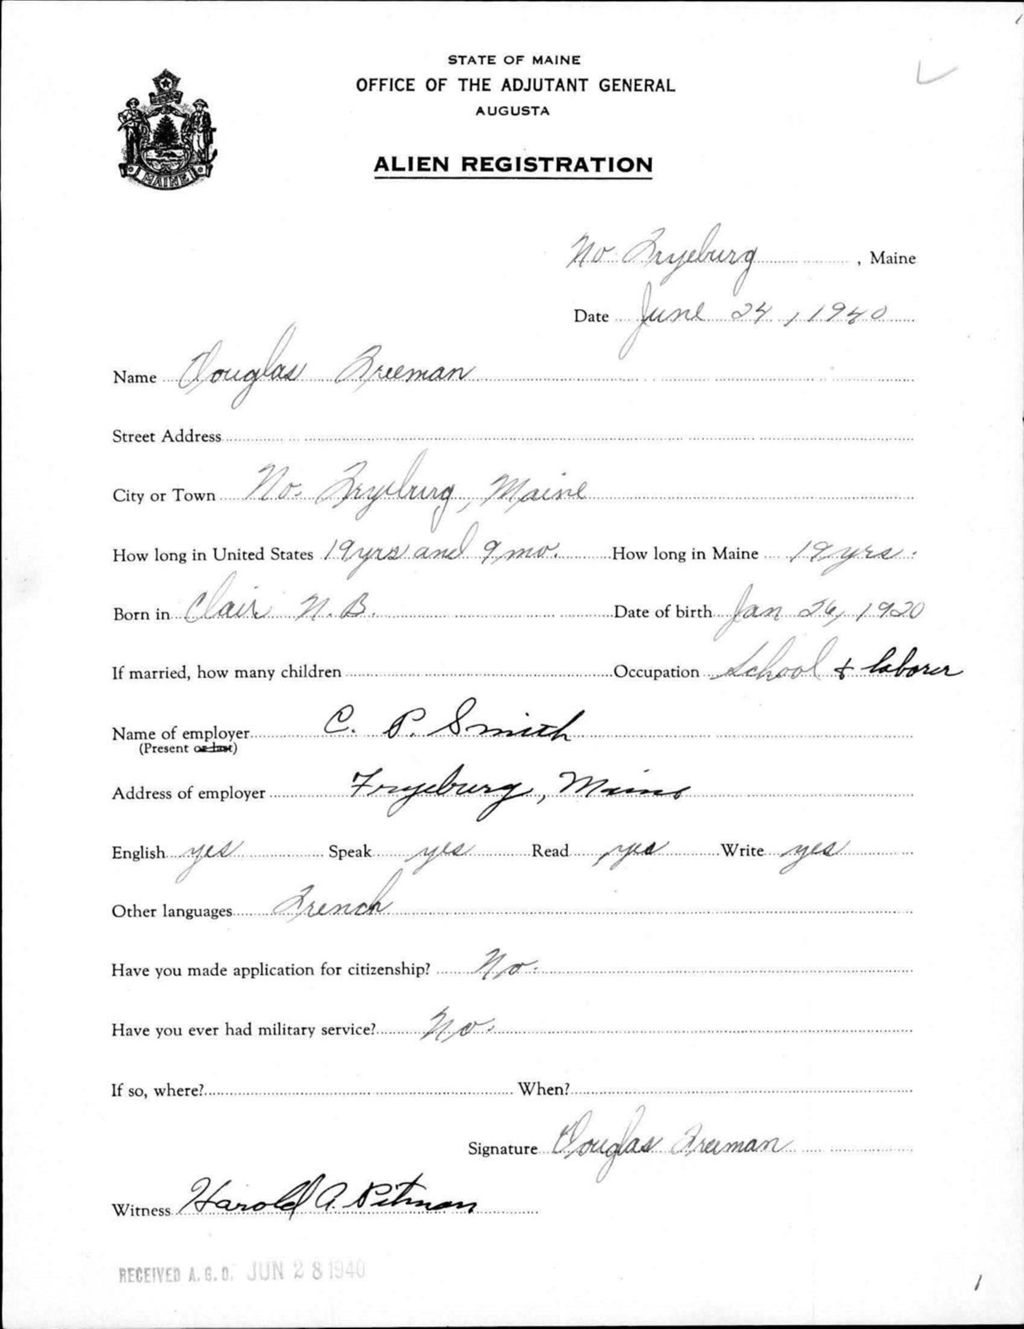 STATE OF MAINE
OFFICE OF THE ADJUTANT GENERAL
AUGUSTA
ALIEN REGISTRATION
MAINE
No. Fryeburg, Maine
Date June 24, 1940
Name Douglas Freeman
Street Address
City or Town No. Fryeburg, Maine
How long in United States 19 yrs and 9 mo. How long in Maine 19 yrs.
Born in Clair N.B. Date of birth Jan 26, 1920
If married, how many children Occupation School & laborer
Name of employer C. P. Smith
(Present or last)
Address of employer Fryeburg, Maine
English yes Speak yes Read yes Write yes
Other languages French
Have you made application for citizenship? No.
Have you ever had military service? No.
If so, where? When?
Signature Douglas Freeman
Witness Harold A. Pitman
RECEIVED A. G. O. JUN 28 1940